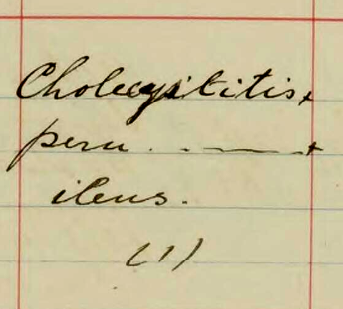 Cholecystitis +
peru. . —— +
ileus.
(1)